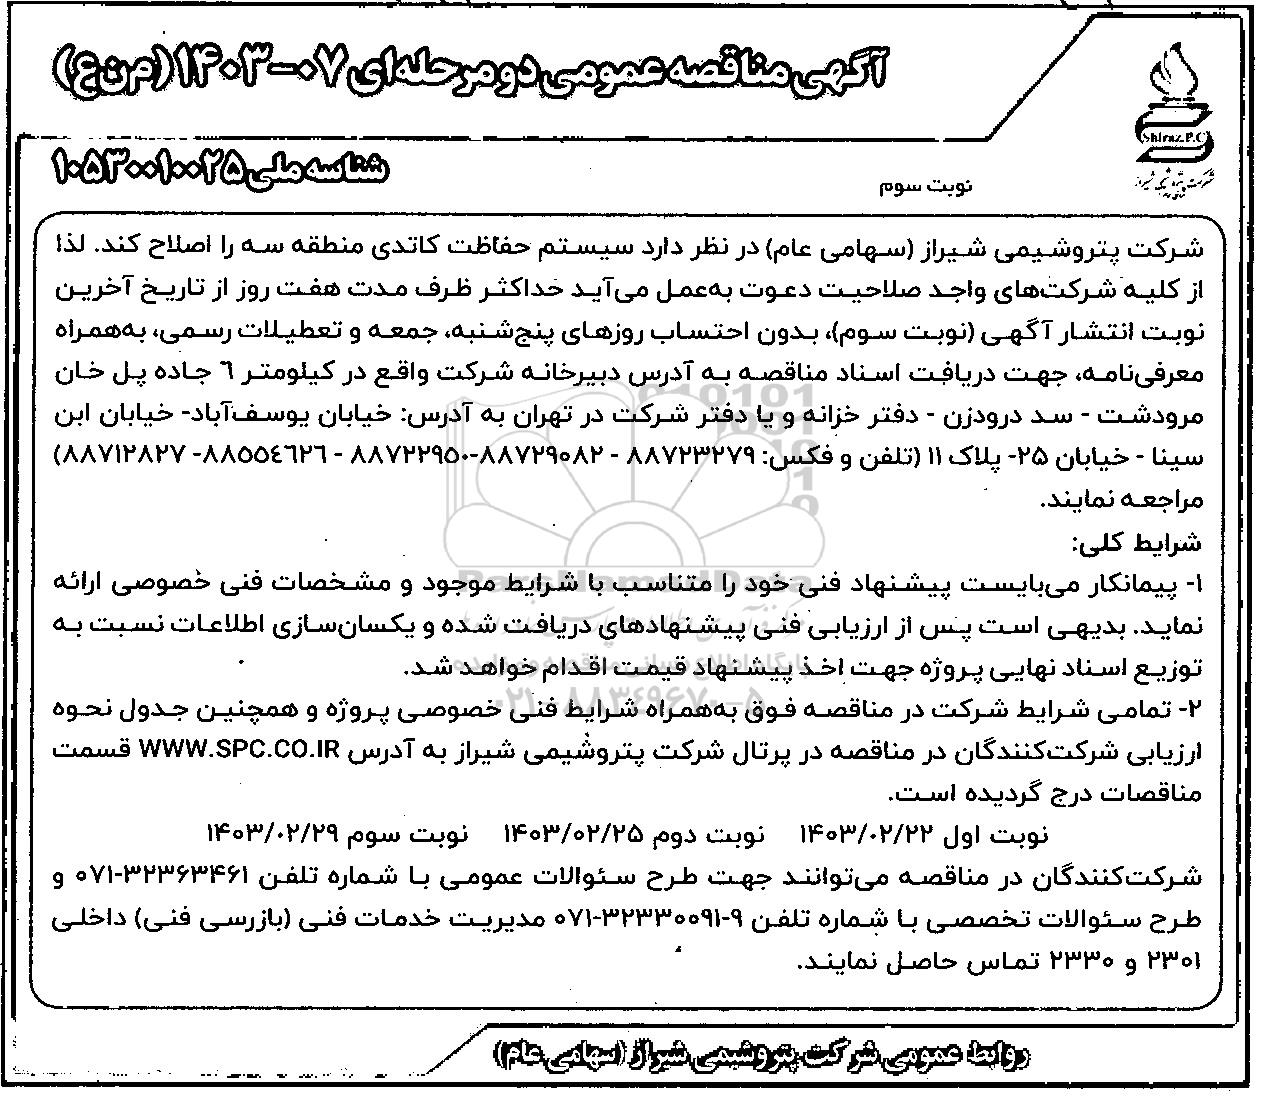 آگهی مناقصه عمومی دو مرحله‌ای ۰۷-۱۴۰۳ (م ن ع)
Shiraz.P.C
شرکت پتروشیمی شیراز
شناسه ملی ۱۰۵۳۰۰۱۰۰۲۵
نوبت سوم
شرکت پتروشیمی شیراز (سهامی عام) در نظر دارد سیستم حفاظت کاتدی منطقه سه را اصلاح کند. لذا
از کلیه شرکت‌های واجد صلاحیت دعوت به‌عمل می‌آید حداکثر ظرف مدت هفت روز از تاریخ آخرین
نوبت انتشار آگهی (نوبت سوم)، بدون احتساب روزهای پنج‌شنبه، جمعه و تعطیلات رسمی، به‌همراه
معرفی‌نامه، جهت دریافت اسناد مناقصه به آدرس دبیرخانه شرکت واقع در کیلومتر ۶ جاده پل خان
مرودشت - سد درودزن - دفتر خزانه و یا دفتر شرکت در تهران به آدرس: خیابان یوسف‌آباد- خیابان ابن
سینا - خیابان ۲۵- پلاک ۱۱ (تلفن و فکس: ۸۸۷۲۳۲۷۹ - ۸۸۷۲۹۰۸۲-۸۸۷۲۲۹۵۰ - ۸۸۵۵۴۶۲۶- ۸۸۷۱۲۸۲۷)
مراجعه نمایند.
شرایط کلی:
۱- پیمانکار می‌بایست پیشنهاد فنی خود را متناسب با شرایط موجود و مشخصات فنی خصوصی ارائه
نماید. بدیهی است پس از ارزیابی فنی پیشنهادهای دریافت شده و یکسان‌سازی اطلاعات نسبت به
توزیع اسناد نهایی پروژه جهت اخذ پیشنهاد قیمت اقدام خواهد شد.
۲- تمامی شرایط شرکت در مناقصه فوق به‌همراه شرایط فنی خصوصی پروژه و همچنین جدول نحوه
ارزیابی شرکت‌کنندگان در مناقصه در پرتال شرکت پتروشیمی شیراز به آدرس WWW.SPC.CO.IR قسمت
مناقصات درج گردیده است.
نوبت اول ۱۴۰۳/۰۲/۲۲ نوبت دوم ۱۴۰۳/۰۲/۲۵ نوبت سوم ۱۴۰۳/۰۲/۲۹
شرکت‌کنندگان در مناقصه می‌توانند جهت طرح سئوالات عمومی با شماره تلفن ۳۲۳۶۳۴۶۱-۰۷۱ و
طرح سئوالات تخصصی با شماره تلفن ۹-۳۲۳۳۰۰۹۱-۰۷۱ مدیریت خدمات فنی (بازرسی فنی) داخلی
۲۳۰۱ و ۲۳۳۰ تماس حاصل نمایند.
روابط عمومی شرکت پتروشیمی شیراز (سهامی عام)
ParsNamadData
۰۲۱-۸۸۳۴۹۶۷۰-۵